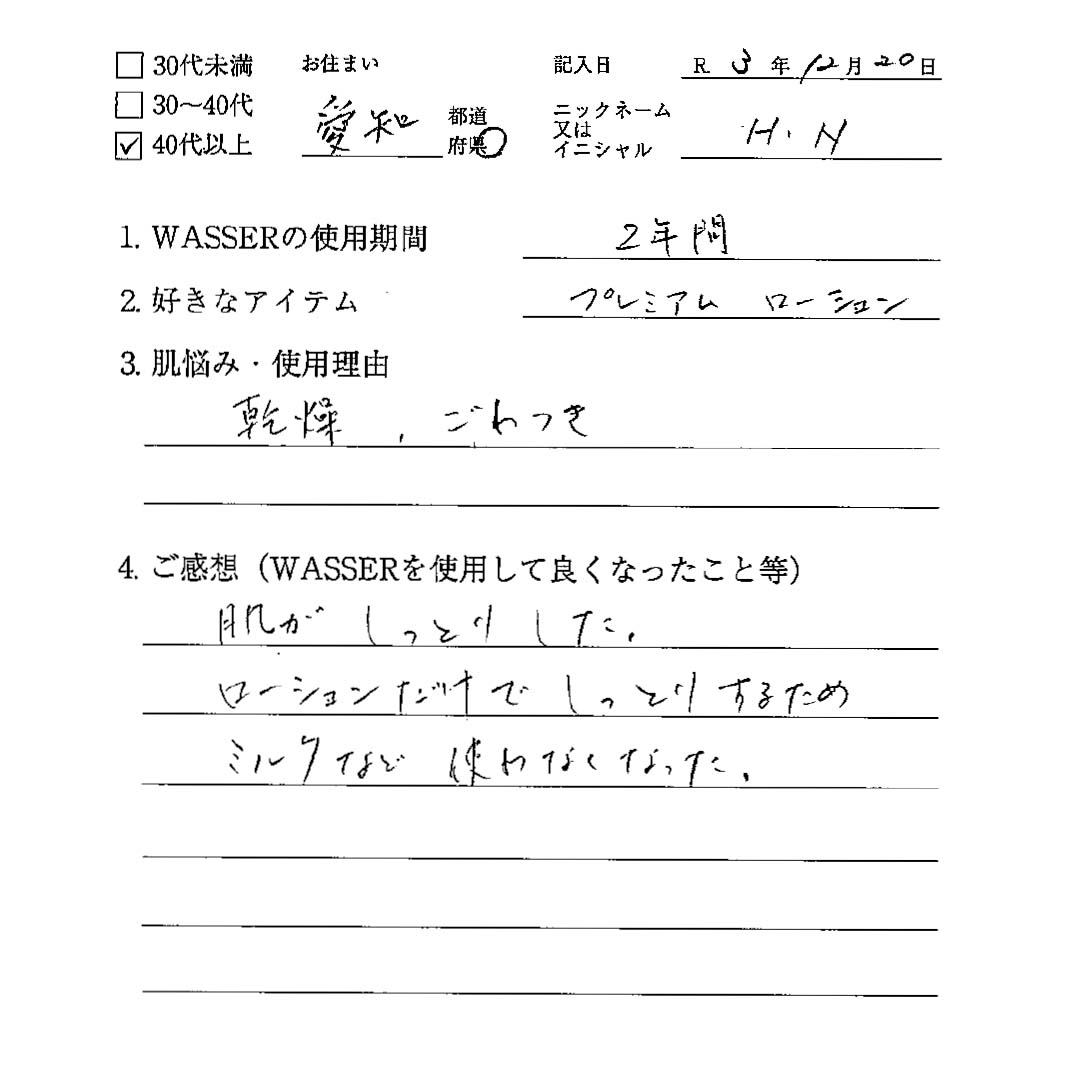 □ 30代未満 お住まい 記入日 R 3 年 12 月 20 日
□ 30〜40代 愛知 都道府県 ニックネーム又はイニシャル H.N
☑ 40代以上
1. WASSERの使用期間 2年間
2. 好きなアイテム プレミアム ローション
3. 肌悩み・使用理由
乾燥、ごわつき
4. ご感想（WASSERを使用して良くなったこと等）
肌がしっとりした。
ローションだけでしっとりするため
ミルクなど使わなくなった。